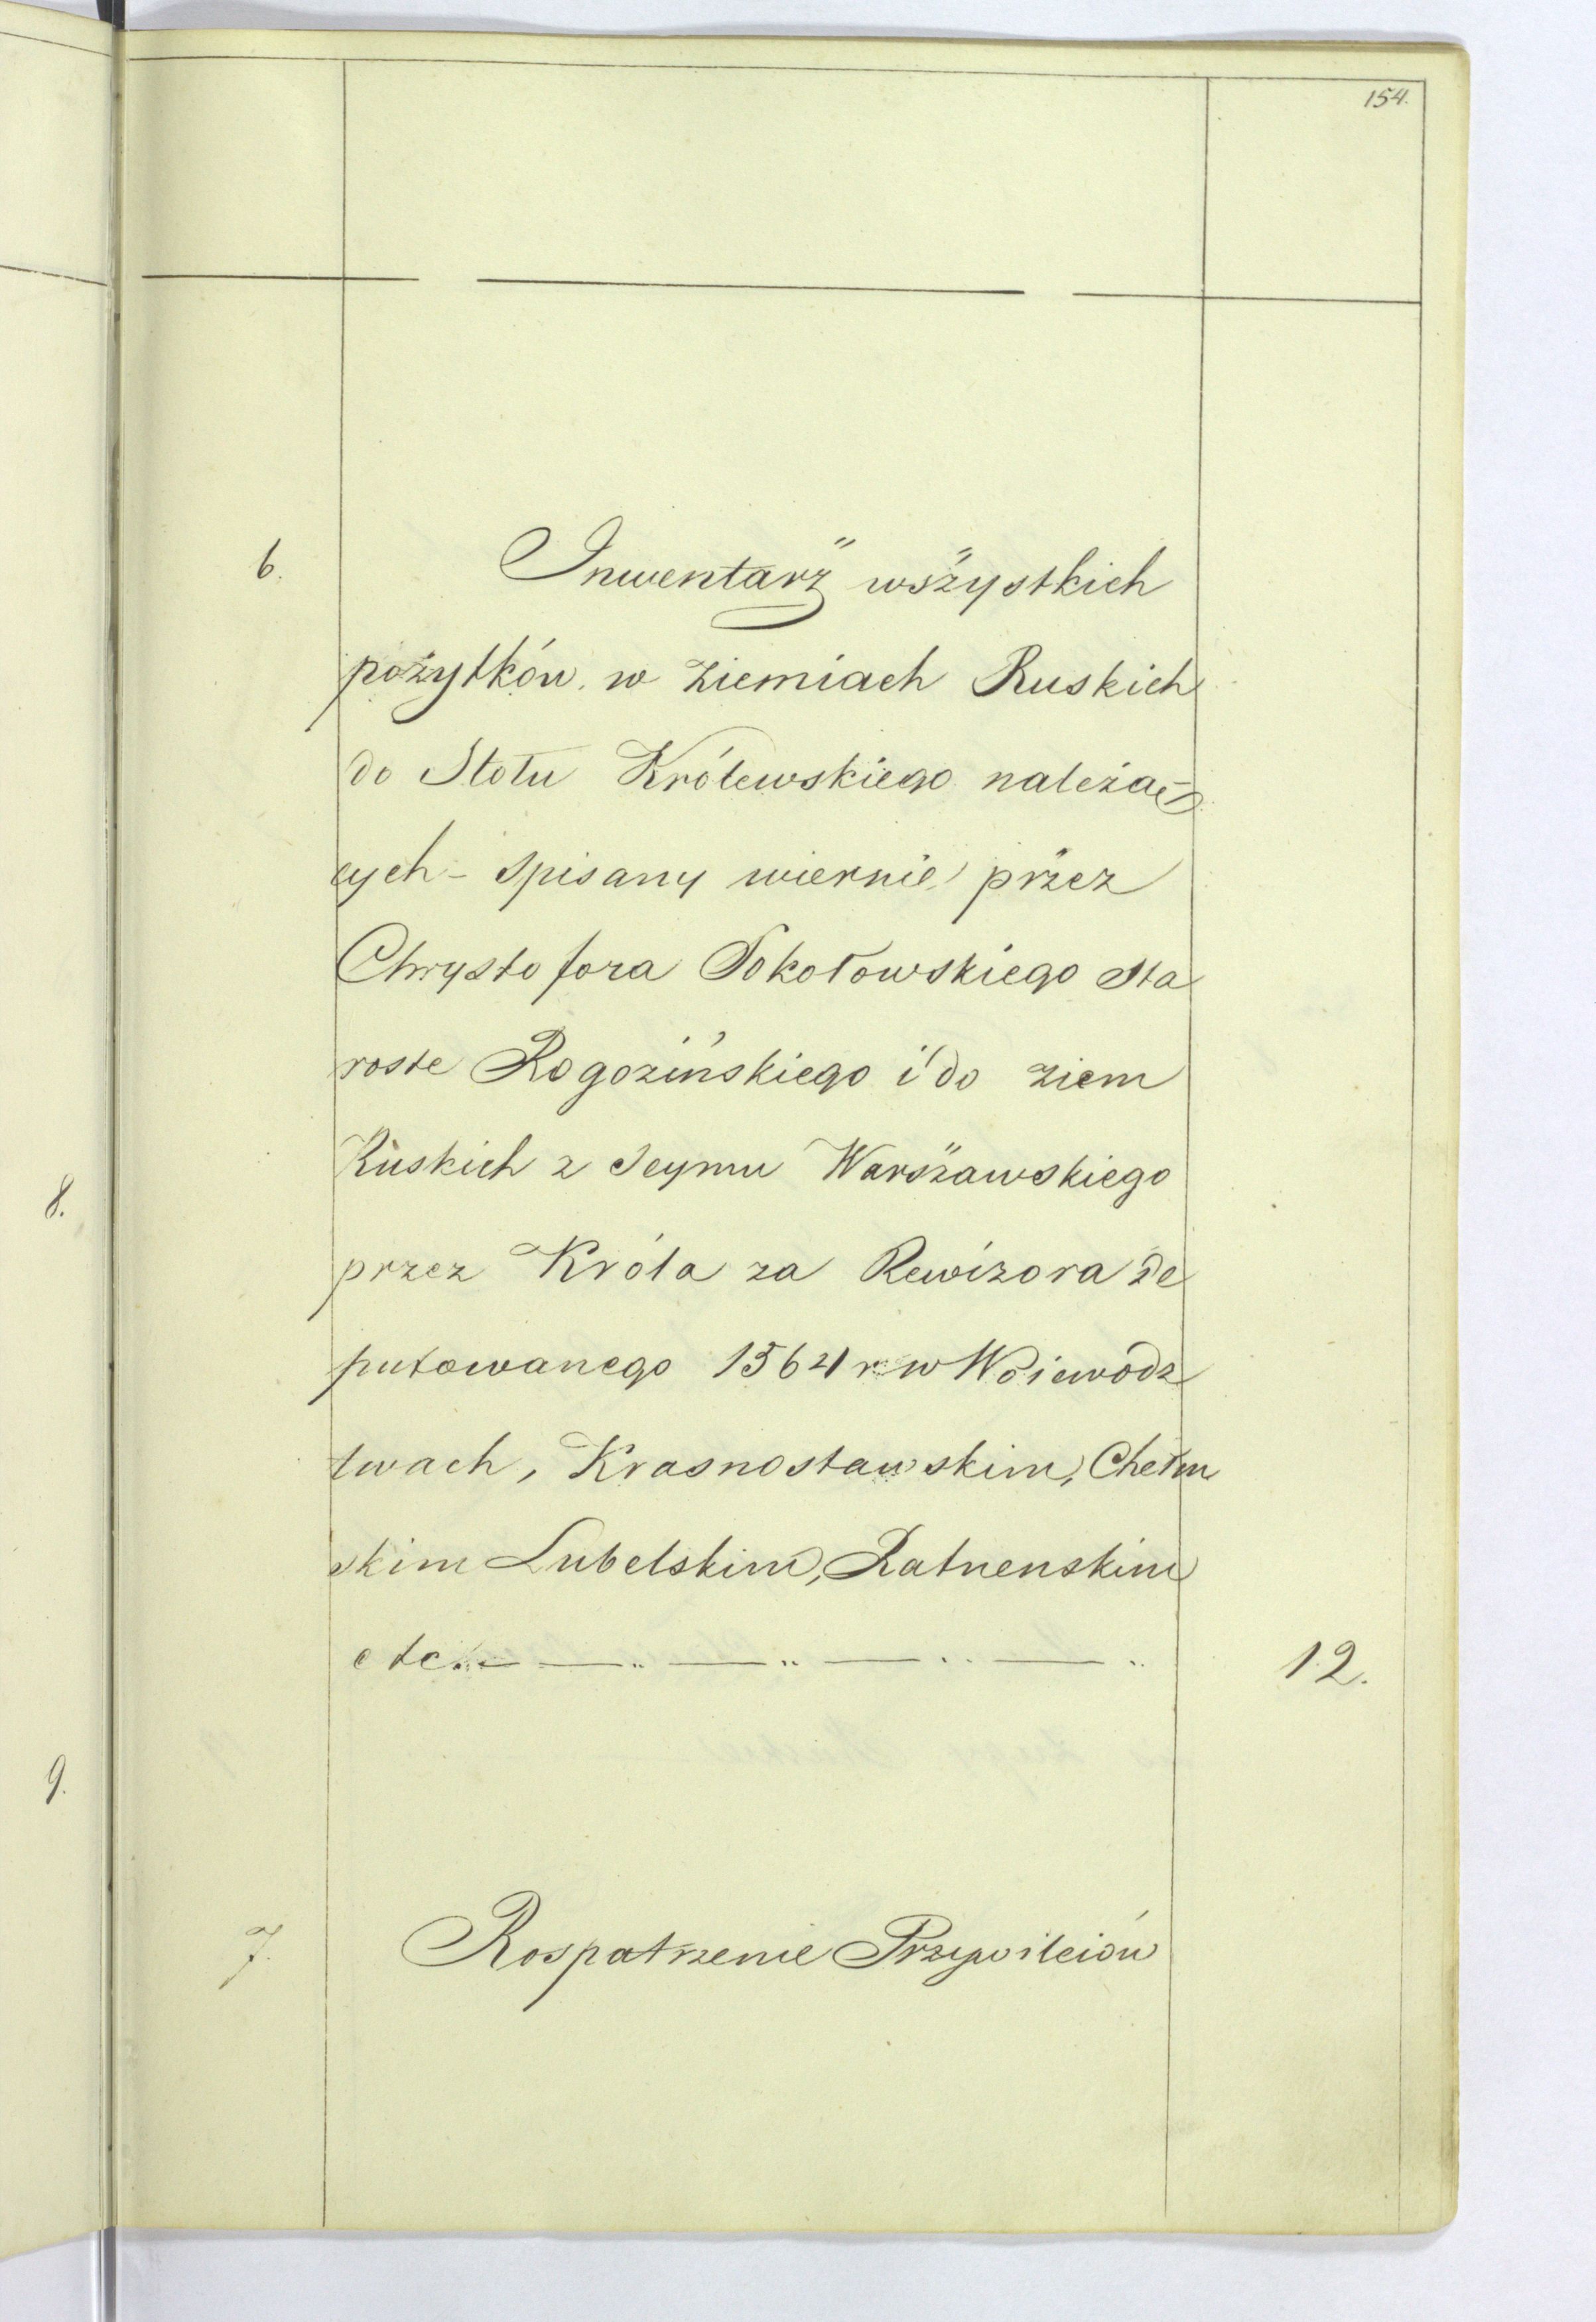 154.
6. Inwentarz wszystkich
pożytków w ziemiach Ruskich
do Stołu Królewskiego należą-
cych - spisany wiernie przez
Chrystofora Sokołowskiego Sta
roste Rogozińskiego i do ziem
Ruskich z Seymu Warszawskiego
przez Króla za Rewizora de
putowanego 1564 r w Woiewodz
twach, Krasnostawskim, Chełm
skim Lubelskim, Ratnenskim
etc. 12.
7. Rospatrzenie Przywileiów
8.
9.